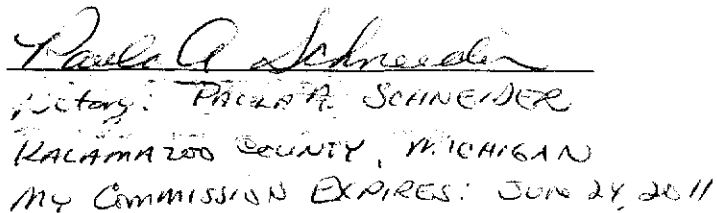 Paula A Schneider
Notary: PAULA A. SCHNEIDER
KALAMAZOO COUNTY, MICHIGAN
MY COMMISSION EXPIRES: JUN 24, 2011